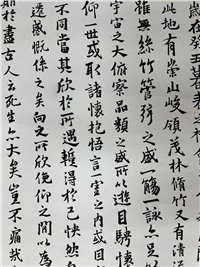 在癸丑暮春
此地有崇山峻領茂林脩竹又有清
雖無絲竹管弦之盛一觴一詠亦足以
宇宙之大俯察品類之盛所以遊目騁懷
仰一世或取諸懷抱悟言一室之內或因
不同當其欣於所遇蹔得於己快然自
遷感慨係之矣向之所欣俛仰之間以為
於盡古人云死生亦大矣豈不痛哉